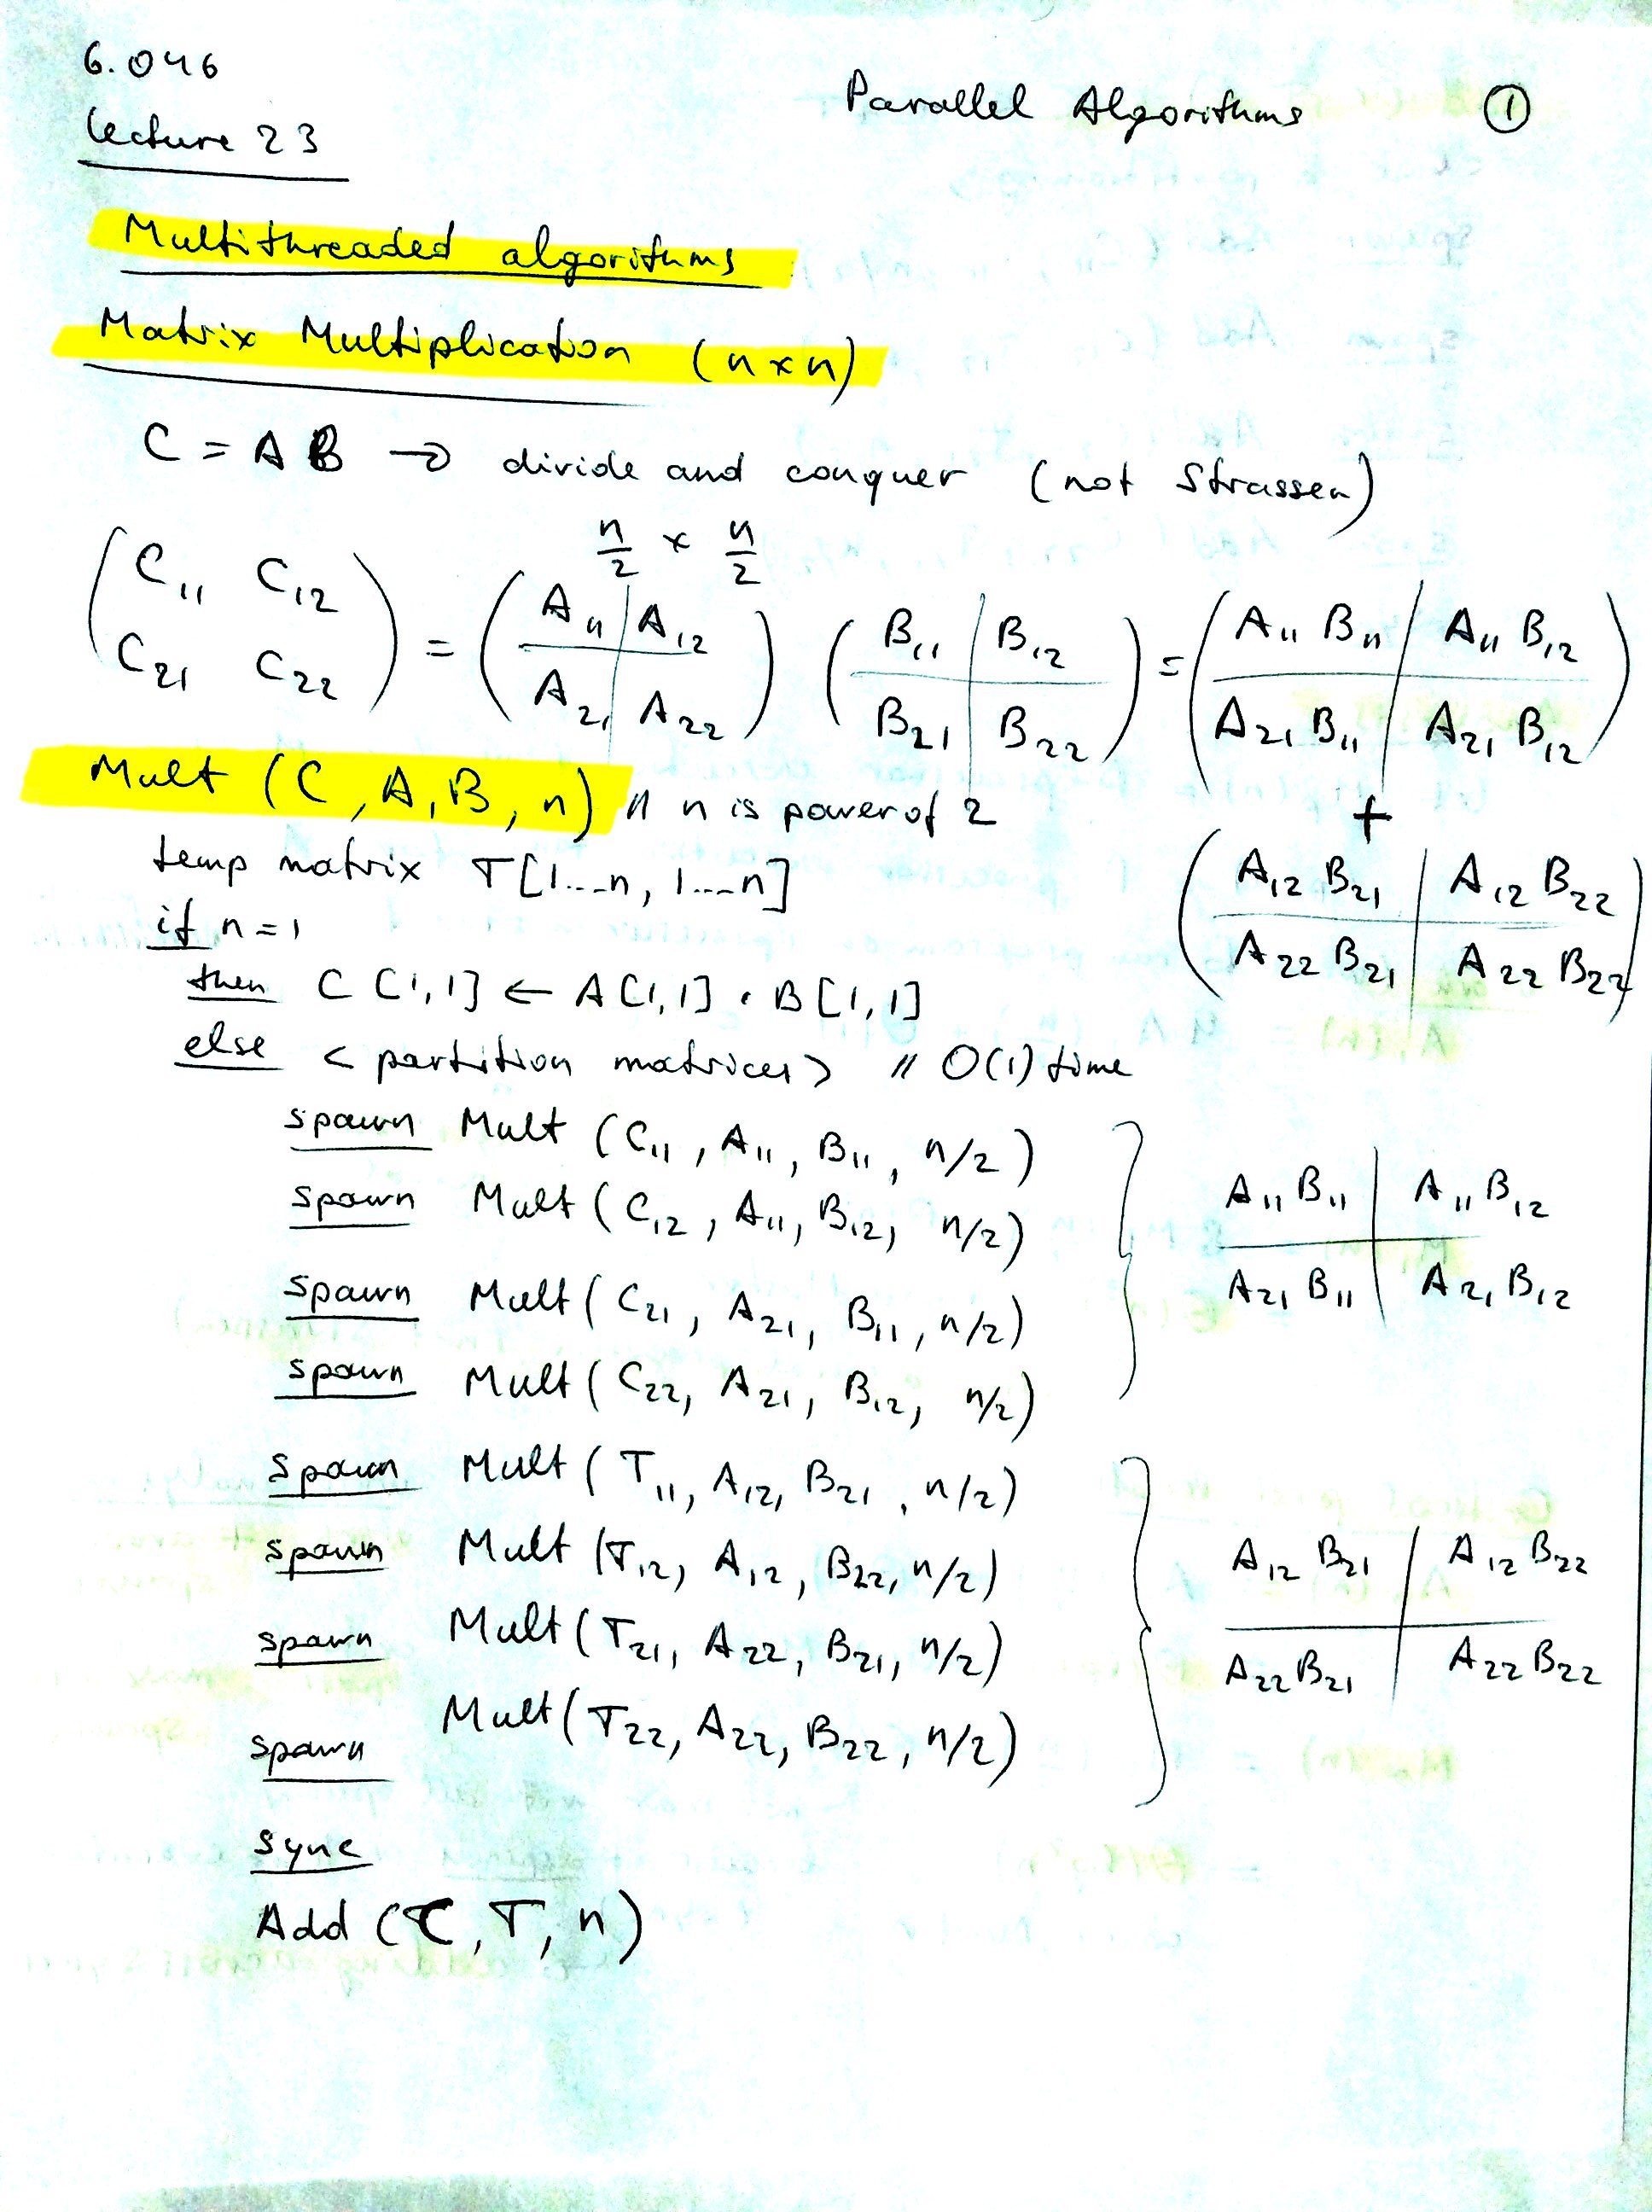 6.046
Lecture 23
Parallel Algorithms ①
Multithreaded algorithms
Matrix Multiplication (n×n)
C = A B → divide and conquer (not Strassen)
n/2 × n/2
( C₁₁ C₁₂ ) = ( A₁₁ | A₁₂ ) ( B₁₁ | B₁₂ ) = ( A₁₁ B₁₁ | A₁₁ B₁₂ )
( C₂₁ C₂₂ ) ( A₂₁ | A₂₂ ) ( B₂₁ | B₂₂ ) ( A₂₁ B₁₁ | A₂₁ B₁₂ )
+
( A₁₂ B₂₁ | A₁₂ B₂₂ )
( A₂₂ B₂₁ | A₂₂ B₂₂ )
Mult (C, A, B, n) // n is power of 2
temp matrix T[1...n, 1...n]
if n = 1
then C[1,1] ← A[1,1] · B[1,1]
else < partition matrices > // O(1) time
spawn Mult (C₁₁, A₁₁, B₁₁, n/2)
spawn Mult (C₁₂, A₁₁, B₁₂, n/2)
spawn Mult (C₂₁, A₂₁, B₁₁, n/2)
spawn Mult (C₂₂, A₂₁, B₁₂, n/2)
A₁₁ B₁₁ | A₁₁ B₁₂
A₂₁ B₁₁ | A₂₁ B₁₂
spawn Mult (T₁₁, A₁₂, B₂₁, n/2)
spawn Mult (T₁₂, A₁₂, B₂₂, n/2)
spawn Mult (T₂₁, A₂₂, B₂₁, n/2)
spawn Mult (T₂₂, A₂₂, B₂₂, n/2)
A₁₂ B₂₁ | A₁₂ B₂₂
A₂₂ B₂₁ | A₂₂ B₂₂
sync
Add (C, T, n)